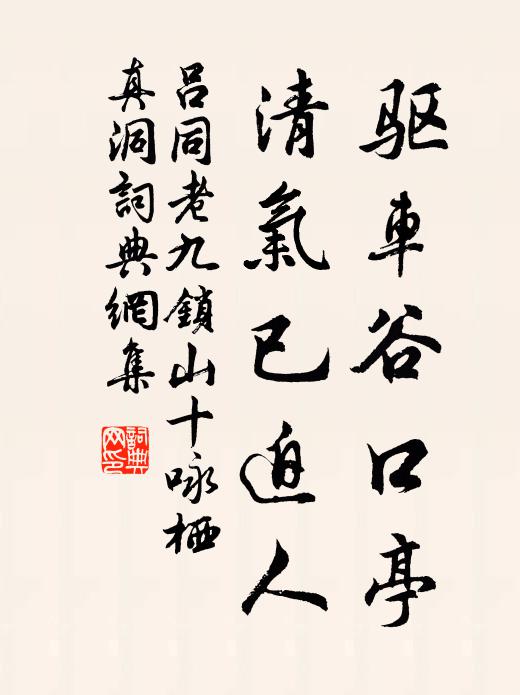 驱車谷口亭
清氣已迫人
吕同老九鎖山十咏栖
真洞詞典網集
詞典网印